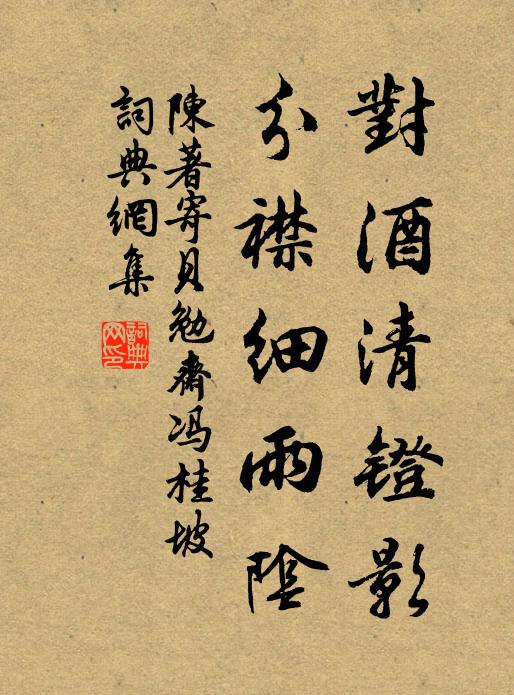 對酒清鐙影
分襟細雨陰
陳著寄貝勉齋冯桂坡
詞典網集
詞典网印